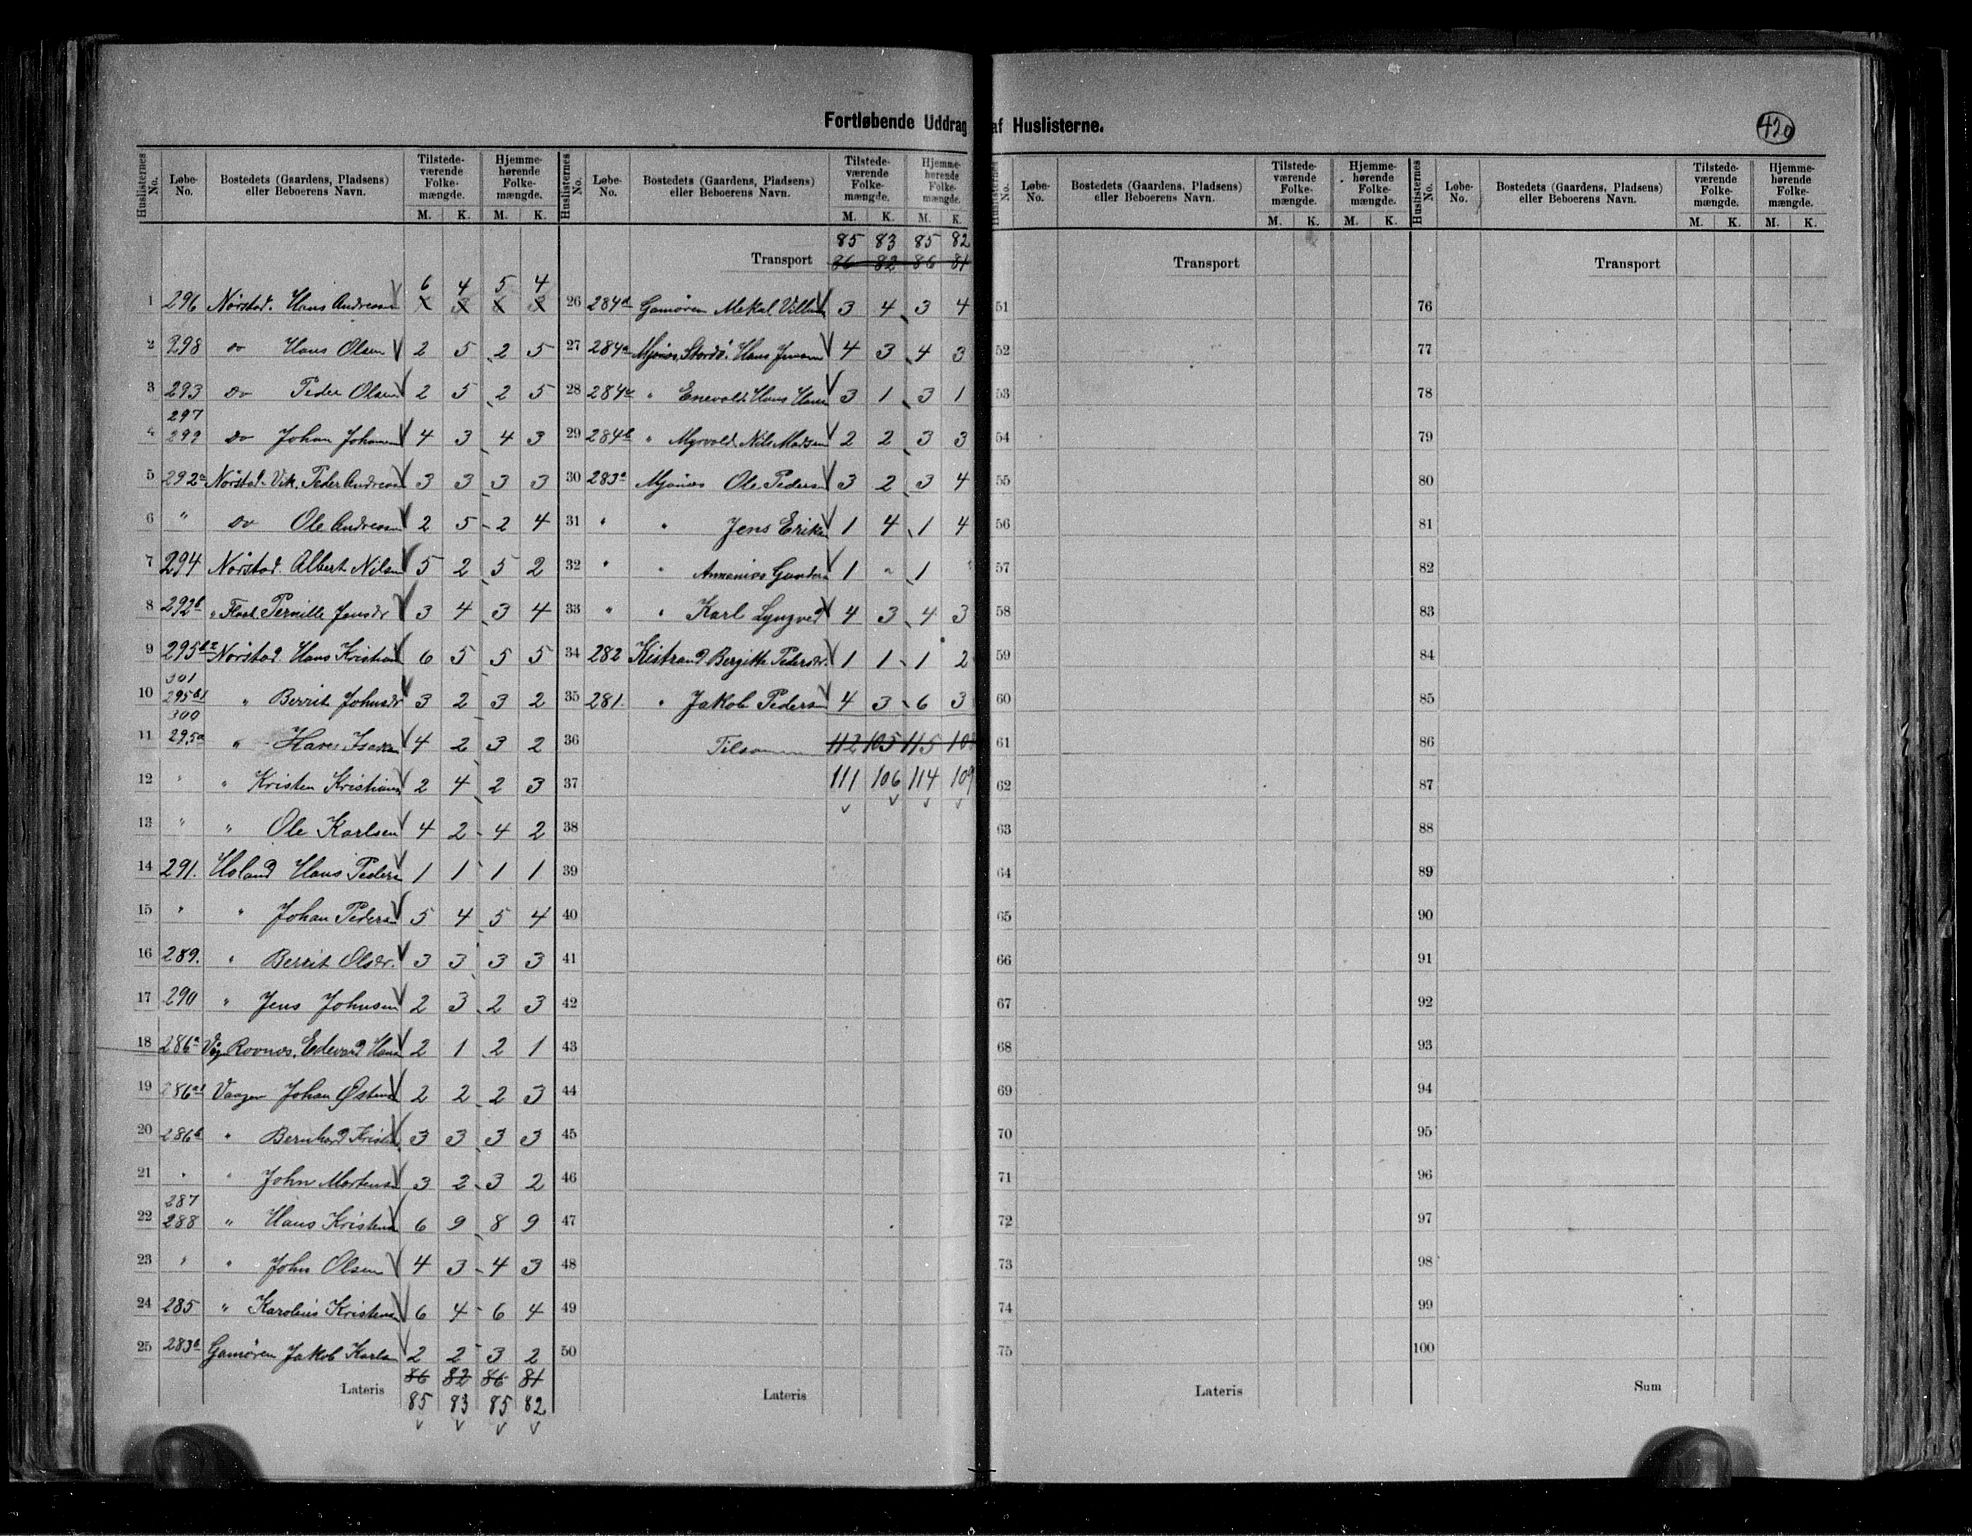 Fortløbende Uddrag af Huslisterne.
420
Huslisternes No. Løbe-No. Bostedets (Gaardens, Pladsens) eller Beboerens Navn. Tilstedeværende Folkemængde. Hjemmehørende Folkemængde.
M. K. M. K.
6 4 5 4
1 296 Nørstad. Hans Andreasen
2 298 do Hans Olsen 2 5 2 5
3 293 do Peder Olsen 2 5 2 5
297
4 299 do Johan Johansen 4 3 4 3
5 292a Nørstad-Vik. Peder Andreasen 3 3 3 3
6 " do Ole Andreasen 2 5 2 4
7 294 Nørstad. Albert Nilsen 5 2 5 2
8 292b " Pernille Jensdr 3 4 3 4
9 295b2 Nørstad Hans Kristian 6 5 5 5
301
10 295b1 " Berrit Johnsdr 3 2 3 2
300
11 295a " Hans Isaksen 4 2 3 2
12 " " Kristen Kristians 2 4 2 3
13 " " Ole Karlsen 4 2 4 2
14 291. Holand Hans Pedersen 1 1 1 1
15 " " Johan Pedersen 5 4 5 4
16 289. " Berrit Olsdr. 3 3 3 3
17 290 " Jens Johnsen 2 3 2 3
18 286a Edevard Hans 2 1 2 1
19 286a1 Vaagen Johan Østen 2 2 2 3
20 286b " Bernhard Krist 3 3 3 3
21 " " John Mortensen 3 2 3 2
287
22 288 " Hans Kristensen 6 9 8 9
23 " " John Olsen 4 3 4 3
24 285 " Karolius Kristensen 6 4 6 4
25 283b Gamøren Jakob Karlsen 2 2 3 2
86 82 86 81
Lateris
85 83 85 82
Huslisternes No. Løbe-No. Bostedets (Gaardens, Pladsens) eller Beboerens Navn. Tilstedeværende Folkemængde. Hjemmehørende Folkemængde.
M. K. M. K.
85 83 85 82
Transport 86 82 86 81
26 284d Gamøren Mekal 3 4 3 4
27 284a Mjønes, Hans 4 3 4 3
28 284c " Enevold Hans Hans 3 1 3 1
29 284b " Myrvold. Nils Madsen 2 2 3 3
30 283a Mjønes Ole Pedersen 3 2 3 4
31 " " Jens Eriksen 1 4 1 4
32 " " Gunders 1 " 1 "
33 " " Karl Lyngved 4 3 4 3
34 282 Kistrand Bergitte Pedersdr. 1 1 1 2
35 281. " Jakob Pedersen 4 3 6 3
36 Tilsammen 112 105 115 108
37 111 106 114 109
38
39
40
41
42
43
44
45
46
47
48
49
50
Lateris
Huslisternes No. Løbe-No. Bostedets (Gaardens, Pladsens) eller Beboerens Navn. Tilstedeværende Folkemængde. Hjemmehørende Folkemængde.
M. K. M. K.
Transport
51
52
53
54
55
56
57
58
59
60
61
62
63
64
65
66
67
68
69
70
71
72
73
74
75
Lateris
Huslisternes No. Løbe-No. Bostedets (Gaardens, Pladsens) eller Beboerens Navn. Tilstedeværende Folkemængde. Hjemmehørende Folkemængde.
M. K. M. K.
Transport
76
77
78
79
80
81
82
83
84
85
86
87
88
89
90
91
92
93
94
95
96
97
98
99
100
Sum